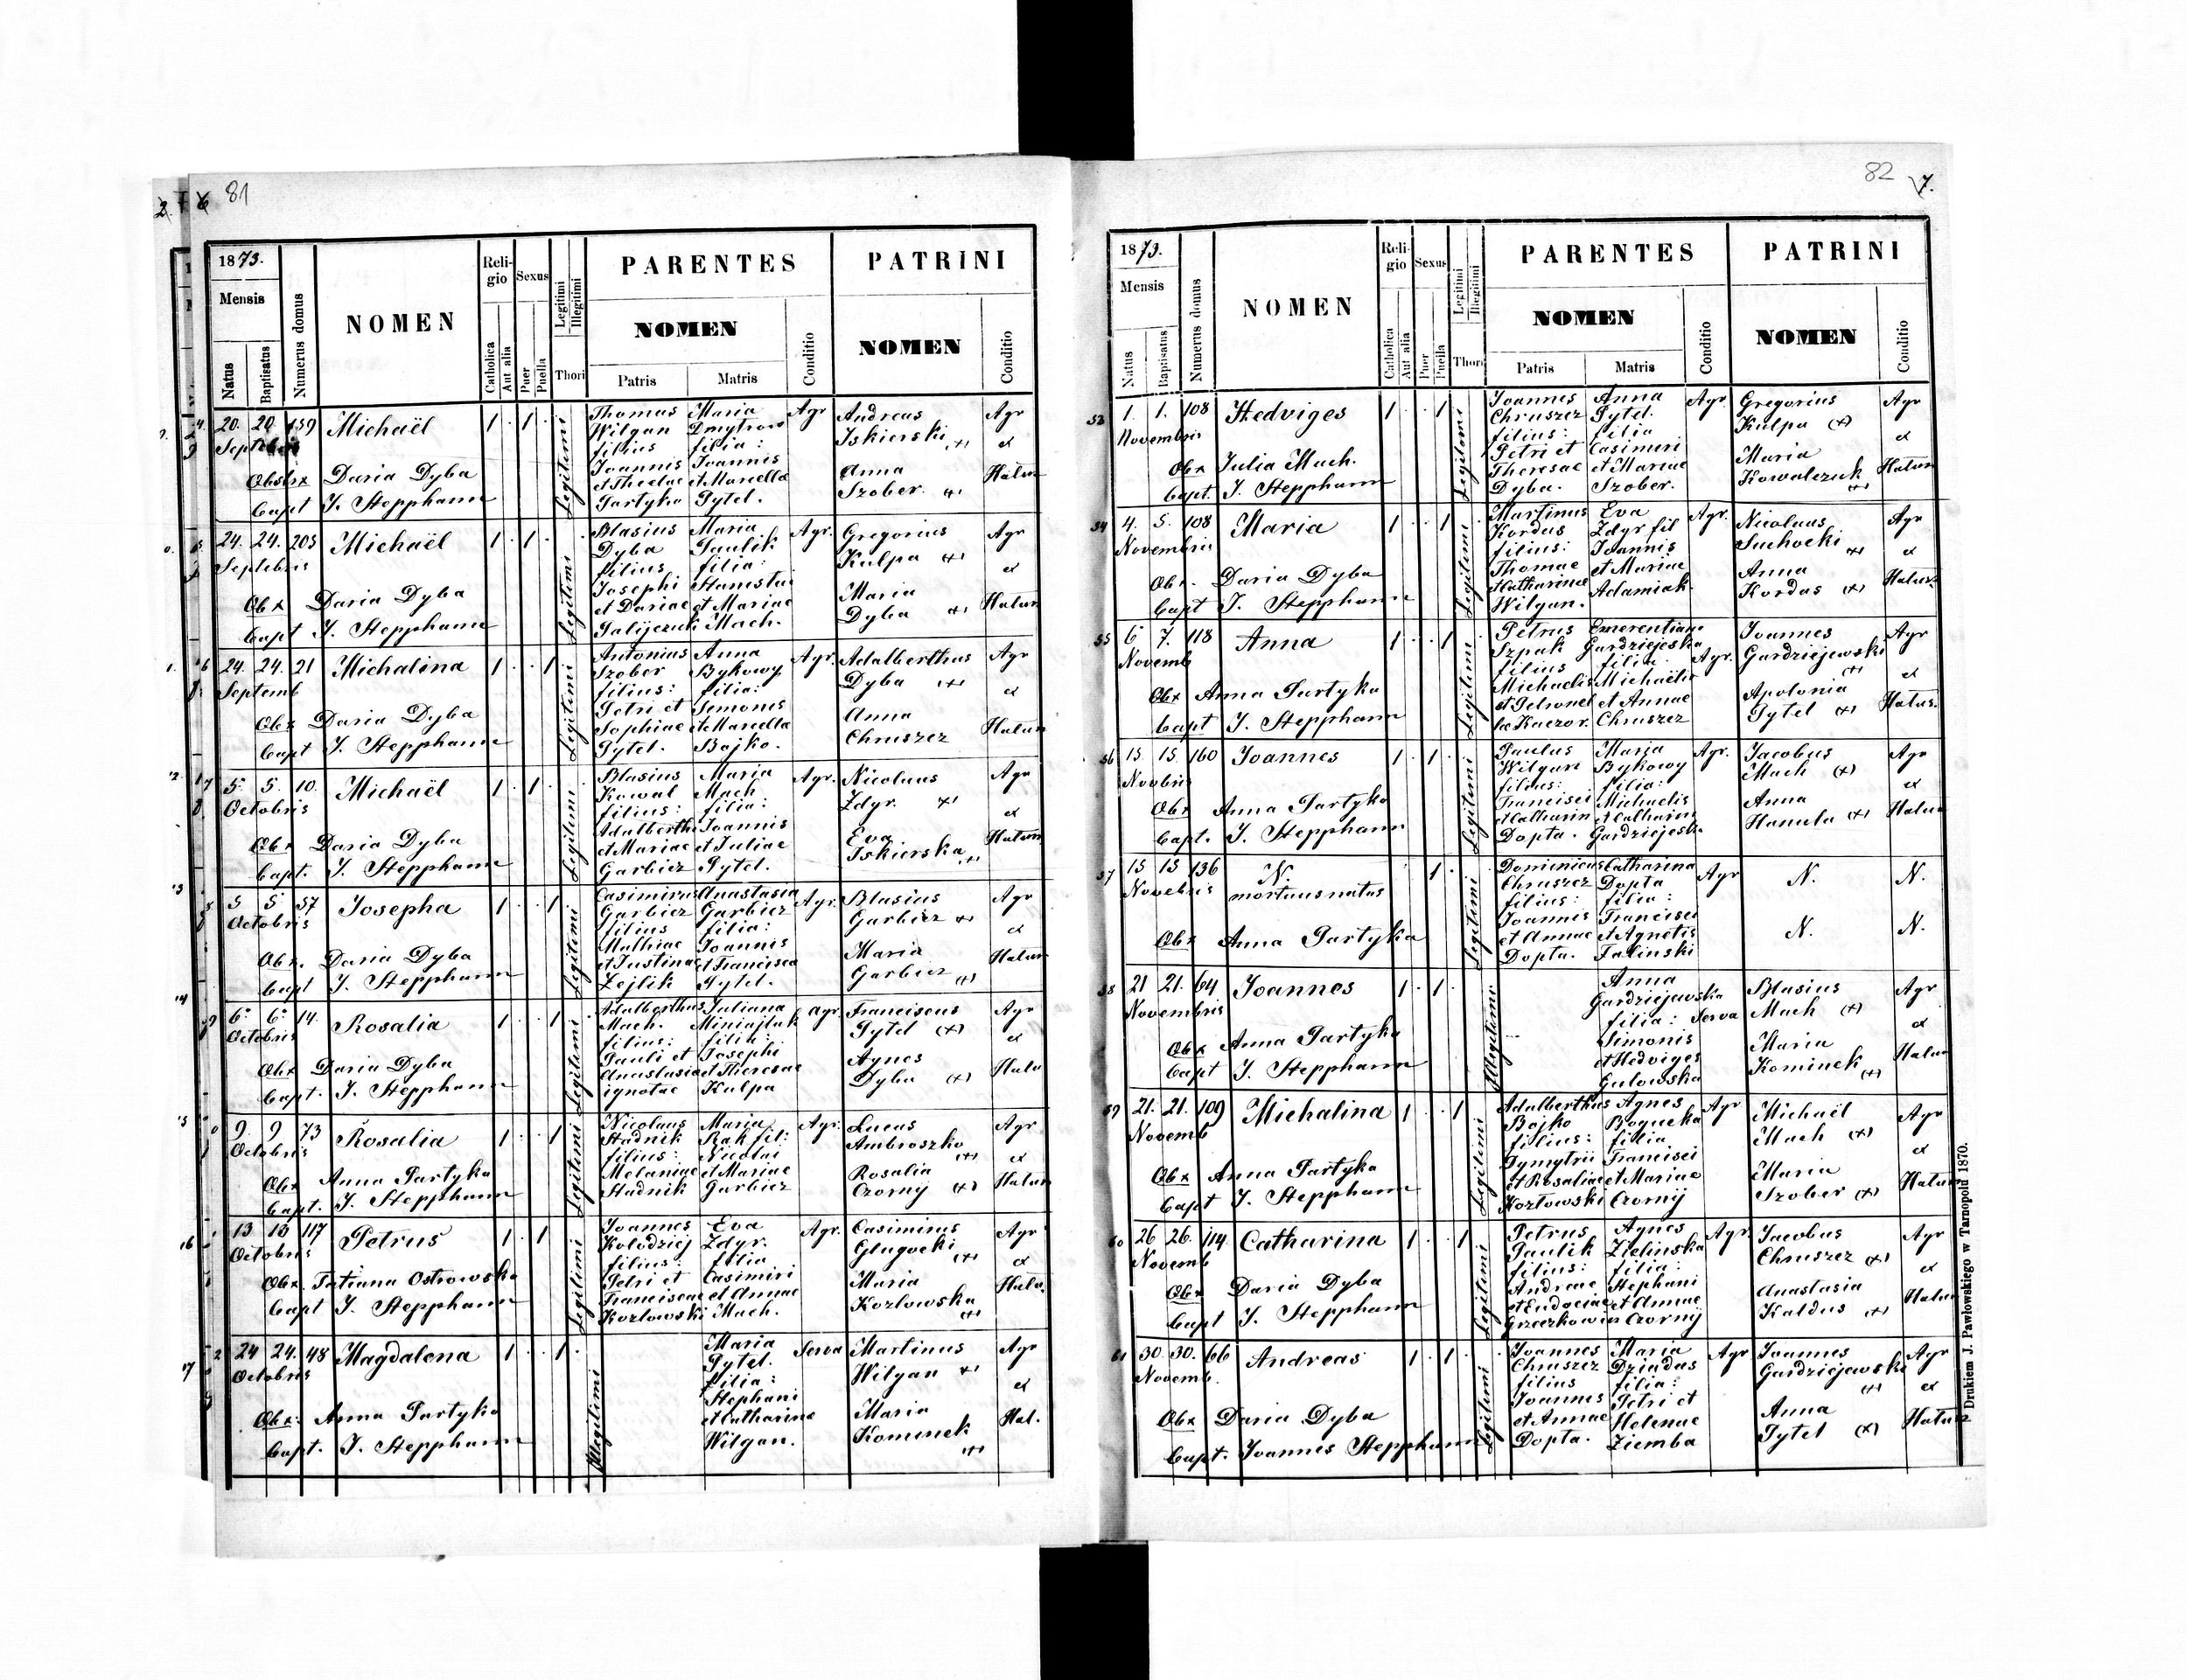 81
1873.
Mensis
Natus
Baptisatus
Numerus domus
NOMEN
Reli-
gio
Catholica
Aut alia
Sexus
Puer
Puella
Legitimi
Illegitimi
Thori
PARENTES
NOMEN
Patris
Matris
Conditio
PATRINI
NOMEN
Conditio
20. 20. 159 Michaël 1 1 Legitimi Thomas Maria Agr Andreas Agr
Septebris Wilgan Dmytrow Iskierski +
filius filia: et
Obstx Daria Dyba Joannis Joannis Anna Hatun
Capt J. Stepphann et Theclae et Marcella Szober +
Partyka Pytel.
24. 24. 205 Michaël 1 1 Legitimi Blasius Maria Agr. Gregorius Agr
Septebris Dyba Paulik Kulpa +
filius filia: et
Obx Daria Dyba Josephi Stanislai Maria Hatun
Capt J. Stepphann et Dariae et Mariae Dyba +
Palijczuk Mach.
24. 24. 21 Michalina 1 1 Legitimi Antonius Anna Agr. Adalberthus Agr
Septemb Szober Bykowy Dyba +
filius: filia: et
Obx Daria Dyba Petri et Simonis Anna Hatun
Capt J. Stepphann Sophiae et Marcella Chruszez
Pytel. Bojko.
5. 5. 10. Michaël 1 1 Legitimi Blasius Maria Agr. Nicolaus Agr
Octobris Kowal Mach Zdyr. +
filius: filia: et
Obx Daria Dyba Adalberthi Joannis Eva Hatun
Capt. J. Stepphann et Mariae et Juliae Iskierska +
Garbiez Pytel.
5 5 57 Josepha 1 1 Legitimi Casimirus Anastasia Agr. Blasius Agr
Octobris Garbiez Garbiez Garbiez +
filius filia: et
Obx. Daria Dyba Mathiae Joannis Maria Hatun
Capt J. Stepphann et Justina et Francisca Garbiez +
Zejlik Pytel.
6. 6. 14. Rosalia 1 1 Legitimi Adalberthus Juliana Agr. Franciscus Agr
Octobris Mach. Miniajluk Pytel (+)
filius: filia: et
Obx Daria Dyba Pauli et Josephi Agnes Hatu
Capt. J. Stepphann Anastasia et Theresae Dyba (+)
ignotae Kulpa
9. 9 73 Rosalia 1 1 Legitimi Nicolaus Maria Agr. Lucas Agr
Octobris Stadnik Bak fil: Ambroszko +
filius: Nicolai et
Obx Anna Partyka Melaniae et Mariae Rosalia Hatun
Capt. J. Stepphann Stadnik Garbiez Czornÿ (+)
13 13 117 Petrus 1 1 Legitimi Joannes Eva Agr. Casimirus Agr
Octobris Kolodziej Zdyr. Glugocki +
filius: filia et
Obx. Tatiana Ostrowska Petri et Casimiri Maria Hatu.
Capt J. Stepphann Franciscae et Annae Kozlowska +
Kozlowski Mach.
24 24. 48 Magdalena 1 1 Illegitimi Maria Serva Martinus Agr
Octobris Pytel. Wilgan +
filia: et
Obx: Anna Partyka Stephani Maria Hat.
Capt. J. Stepphann et Catharina Kominek +
Wilgan.
82 7.
1873.
Mensis
Natus
Baptisatus
Numerus domus
NOMEN
Reli-
gio
Catholica
Aut alia
Sexus
Puer
Puella
Legitimi
Illegitimi
Thori
PARENTES
NOMEN
Patris
Matris
Conditio
PATRINI
NOMEN
Conditio
53 1. 1. 108 Hedviges 1 1 Legitimi Joannes Anna Agr. Gregorius Agr
Novembris Chruszez Pytel. Kulpa (+)
filius: filia et
Obx Julia Mach. Petri et Casimiri Maria Hatun
Capt. J. Stepphann Theresae et Mariae Kowalczuk +
Dyba. Szober.
54 4. 5. 108 Maria 1 1 Legitimi Martinus Eva Agr. Nicolaus Agr
Novembris Kordas Zdyr fil Suchocki +
filius: Joannis et
Obx. Daria Dyba Thomae et Mariae Anna Hatun
Capt J. Stepphann Catharinae Adamiak Kordas (+)
Wilgan.
55 6 7. 118 Anna 1 1 Legitimi Petrus Emerentiana Joannes Agr
Novemb Szpak Gardziejeska Agr. Gardziejewski +
filius filia. et
Obx Anna Partyka Michaelis Michaëlis Apolonia Hatun.
Capt J. Stepphann et Petronel et Annae Pytel (+)
lae Kaczor. Chruszez
56 15 15. 160 Joannes 1 1 Legitimi Paulus Maria Agr. Jacobus Agr
Novbris Wilgan Bykowy Mach (+)
filius: filia: et
Obx Anna Partyka Francisci Michaelis Anna Hatun
Capt. J. Stepphann et Catharin et Catharin Hanula (+)
Dopta. Gardziejeska
57 15 15 136 N. 1 Legitimi Dominicus Catharina Agr N. N.
Novebris mortuus natus Chruszez Dopta
filius: filia:
Joannis Francisci N. N.
Obx Anna Partyka et Annae et Agnetis
Dopta. Falinski
58 21 21. 64 Joannes 1 1 Illegitimi Anna Blasius Agr
Novembris Gardziejewska Mach (+)
filia: Serva et
Obx Anna Partyka Simonis Maria Hatun
Capt J. Stepphann et Hedviges Kominek (+)
Gulowska
59 21. 21. 109 Michalina 1 1 Legitimi Adalberthus Agnes Agr Michaël Agr
Novemb Bojko Bogucka Mach (+)
filius: filia et
Obx Anna Partyka Dymytrii Francisci Maria Hatun
Capt J. Stepphann et Rosaliae et Mariae Szober (+)
Kozlowski Czornÿ
60 26 26. 114. Catharina 1 1 Legitimi Petrus Agnes Agr. Jacobus Agr
Novemb Paulik Zielinska Chruszez (+)
filius: filia: et
Obx Daria Dyba Andreae Stephani Anastasia Hatun
Capt J. Stepphann et Eudociae et Annae Kaldus +
Greczkowin Czornÿ
61 30 30. 66 Andreas 1 1 Legitimi Joannes Maria Agr Joannes Agr
Novemb. Chruszez Dziadus Gardziejewski +
filius filia: et
Obx Daria Dyba Joannes Petri et Anna Hatun
Capt. Joannes Stepphann et Annae Helenae Pytel (+)
Dopta. Ziemba
Drukiem J. Pawłowskiego w Tarnopolu 1870.